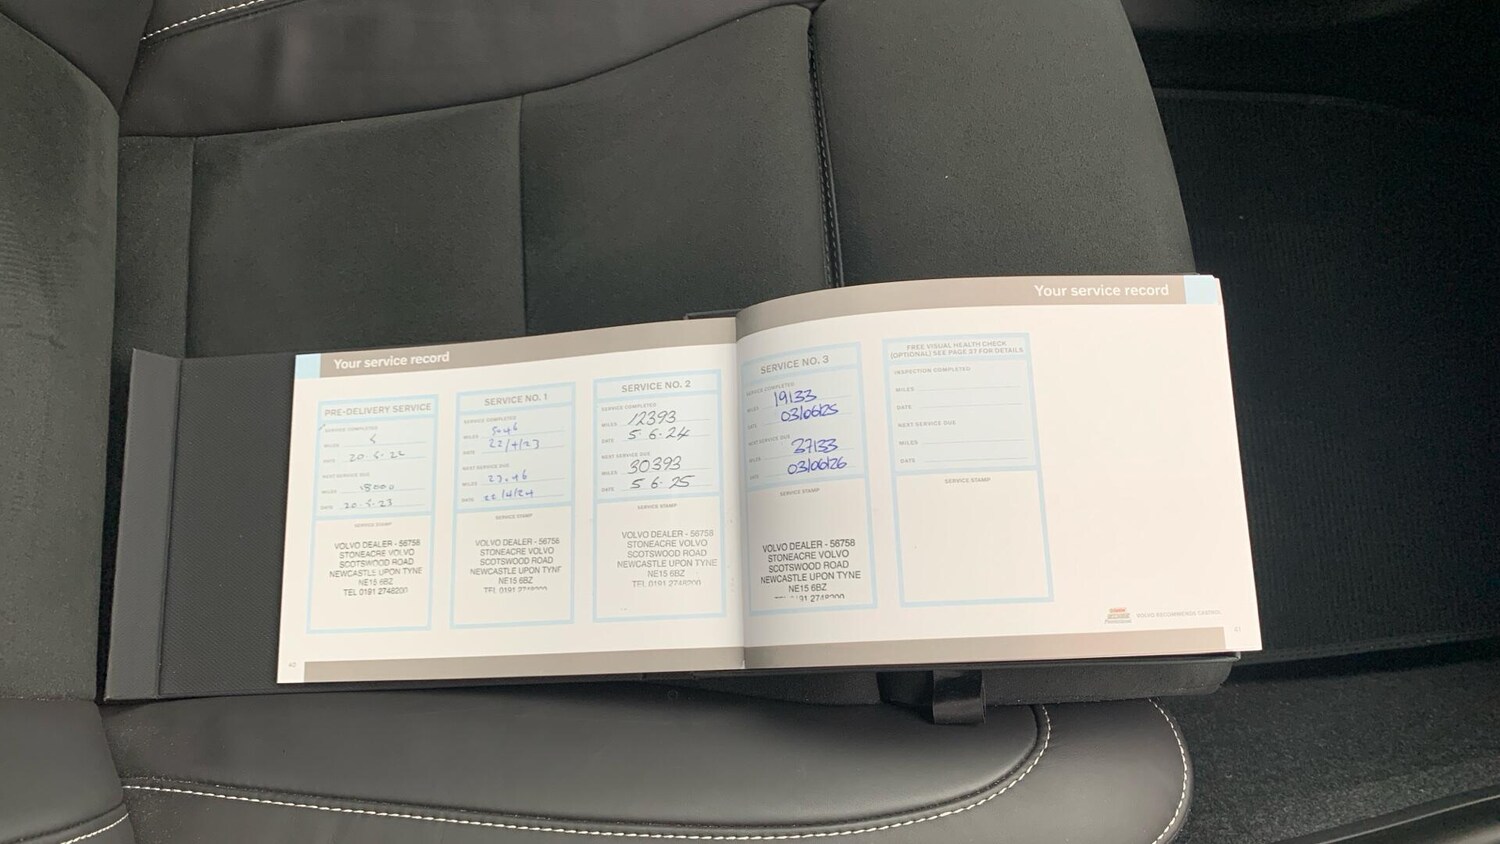 Your service record
PRE-DELIVERY SERVICE
SERVICE COMPLETED
MILES 5
DATE 20.5.22
NEXT SERVICE DUE
MILES 18000
DATE 20.5.23
SERVICE STAMP
VOLVO DEALER - 56758
STONEACRE VOLVO
SCOTSWOOD ROAD
NEWCASTLE UPON TYNE
NE15 6BZ
TEL 0191 2748200
SERVICE NO. 1
SERVICE COMPLETED
MILES 5046
DATE 22/4/23
NEXT SERVICE DUE
MILES
DATE 22/4/24
SERVICE STAMP
VOLVO DEALER - 56758
STONEACRE VOLVO
SCOTSWOOD ROAD
NEWCASTLE UPON TYNE
NE15 6BZ
TEL 0191 2748200
SERVICE NO. 2
SERVICE COMPLETED
MILES 12393
DATE 5.6.24
NEXT SERVICE DUE
MILES 30393
DATE 5.6.25
SERVICE STAMP
VOLVO DEALER - 56758
STONEACRE VOLVO
SCOTSWOOD ROAD
NEWCASTLE UPON TYNE
NE15 6BZ
TEL 0191 2748200
40
Your service record
SERVICE NO. 3
SERVICE COMPLETED
MILES 19133
DATE 03/06/25
NEXT SERVICE DUE
MILES 37133
DATE 03/06/26
SERVICE STAMP
VOLVO DEALER - 56758
STONEACRE VOLVO
SCOTSWOOD ROAD
NEWCASTLE UPON TYNE
NE15 6BZ
2748200
FREE VISUAL HEALTH CHECK
(OPTIONAL) SEE PAGE 27 FOR DETAILS
INSPECTION COMPLETED
MILES
DATE
NEXT SERVICE DUE
MILES
DATE
SERVICE STAMP
VOLVO RECOMMENDS CASTROL
41